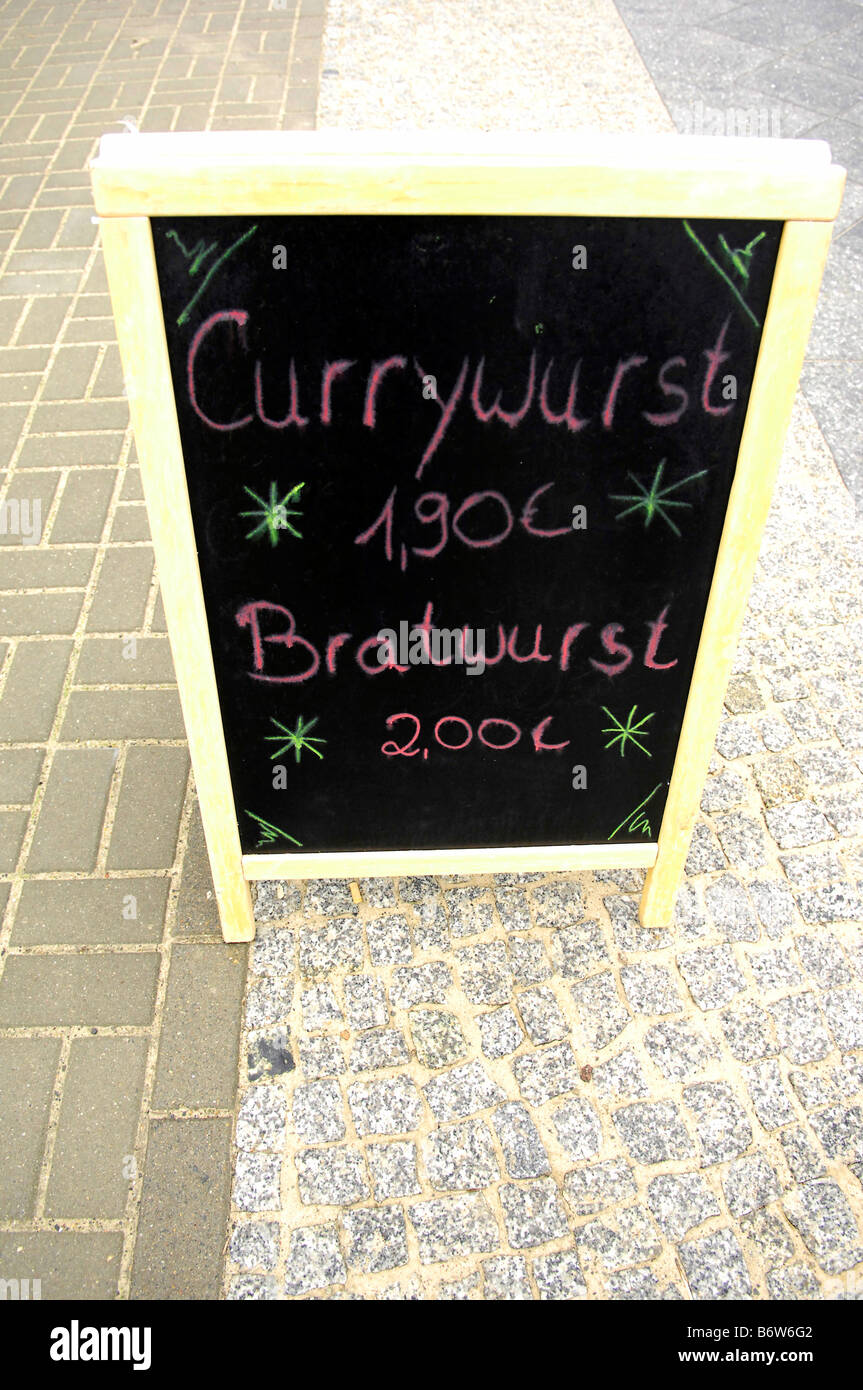 Currywurst
1,90€
Bratwurst
2,00€
alamy
Image ID: B6W6G2
www.alamy.com